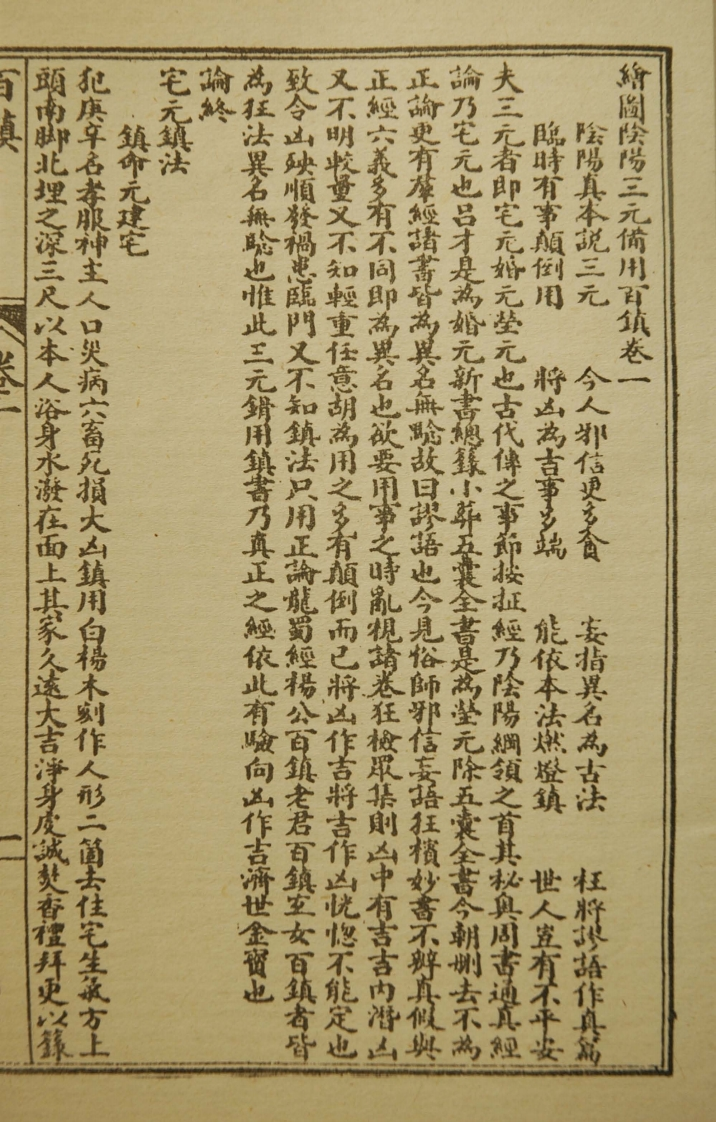 繪圖陰陽三元備用百鎮卷一
陰陽真本説三元　今人邪信更多貪　妄指異名為古法　枉將謬語作真篇
臨時有事顛倒用　將凶為吉事多端　能依本法燃燈鎮　世人豈有不平安
夫三元者即宅元婚元塋元也古代傳之事節按扯經乃陰陽綱領之首其秘與周書通真經
論乃宅元也呂才是為婚元新書總籙小葬五囊全書是為塋元除五囊全書今朝刪去不為
正論更有羣經諸書皆為異名無驗故曰謬語也今見俗師邪信妄語狂積妙書不辨真假與
正經六義多有不同即為異名也欲要用事之時亂視諸卷狂檢眾集則凶中有吉吉內潛凶
又不明較量又不知輕重任意胡為用之多有顛倒而已將凶作吉將吉作凶恍惚不能定也
致令凶殃順發禍患臨門又不知鎮法只用正論龍蜀經楊公百鎮老君百鎮玄女百鎮者皆
為狂法異名無驗也惟此三元鎮用鎮書乃真正之經依此有驗向凶作吉濟世金寶也
論終
宅元鎮法
鎮命元建宅
犯庚辛名孝服神主人口災病六畜死損大凶鎮用白楊木刻作人形二箇去住宅生氣方上
頭南脚北埋之深三尺以本人浴身水潑在面上其家久遠大吉淨身虔誠焚香禮拜更以籙
百鎮
卷一
一